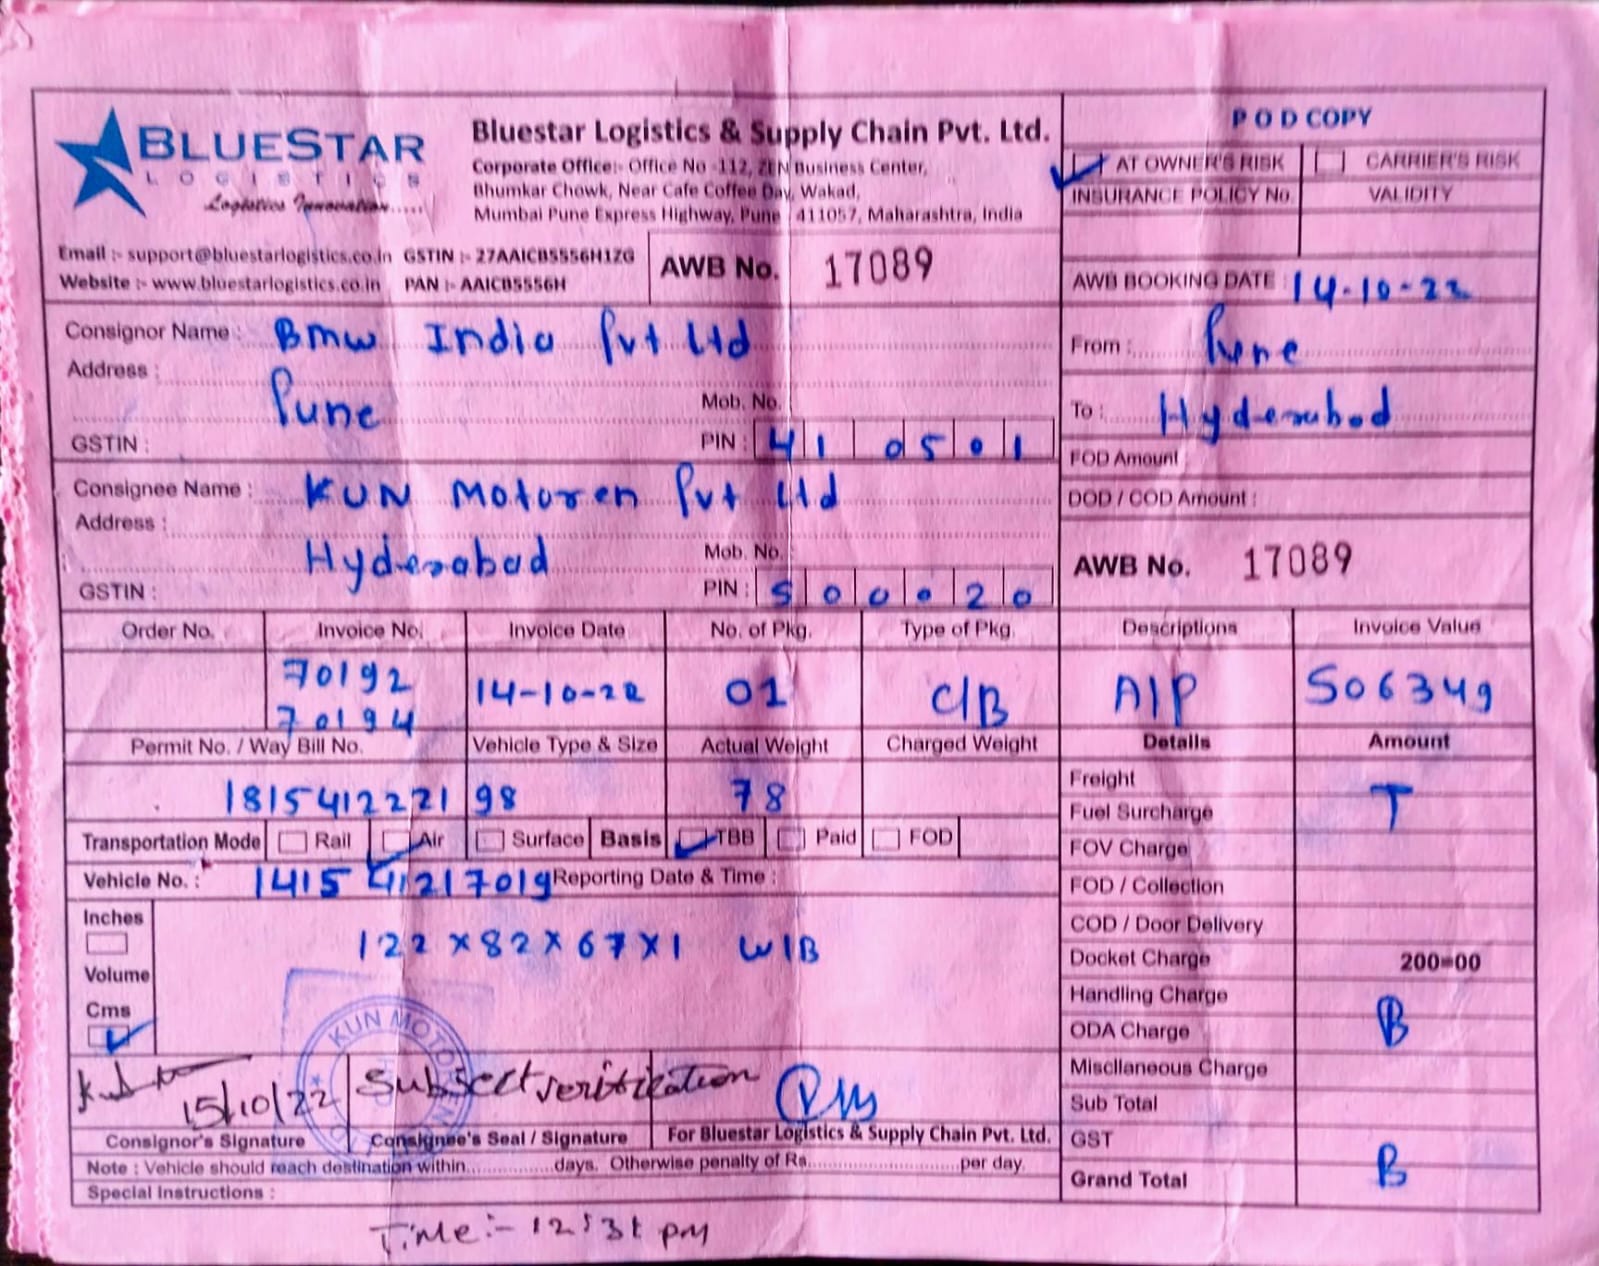 BLUESTAR
LOGISTICS
Logistics Innovation......
Bluestar Logistics & Supply Chain Pvt. Ltd.
Corporate Office:- Office No -112, ZEN Business Center,
Bhumkar Chowk, Near Cafe Coffee Day, Wakad,
Mumbai Pune Express Highway, Pune 411057, Maharashtra, India
Email :- support@bluestarlogistics.co.in GSTIN :- 27AAICB5556H1ZG
Website :- www.bluestarlogistics.co.in PAN :- AAICB5556H
AWB No. 17089
POD COPY
AT OWNER'S RISK CARRIER'S RISK
INSURANCE POLICY No. VALIDITY
AWB BOOKING DATE : 14-10-22
Consignor Name : BMW India Pvt Ltd
Address :
Pune
Mob. No.
GSTIN : PIN : 410501
From : Pune
To : Hyderabad
FOD Amount
DOD / COD Amount :
Consignee Name : KUN Motoren Pvt Ltd
Address :
Hyderabad
Mob. No.
GSTIN : PIN : 500020
AWB No. 17089
Order No. Invoice No. Invoice Date No. of Pkg. Type of Pkg. Descriptions Invoice Value
70192 14-10-22 01 C/B A/P 506349
70194
Permit No. / Way Bill No. Vehicle Type & Size Actual Weight Charged Weight
181541222198 78
Transportation Mode Rail Air Surface Basis TBB Paid FOD
Vehicle No. : 141541217019 Reporting Date & Time :
Inches
Volume
Cms
122 x 82 x 67 x 1 W/B
Details Amount
Freight
T
Fuel Surcharge
FOV Charge
FOD / Collection
COD / Door Delivery
Docket Charge 200=00
Handling Charge
B
ODA Charge
Miscllaneous Charge
Sub Total
GST
B
Grand Total
KUN MOTO
15/10/22
Subject verification
Consignor's Signature Consignee's Seal / Signature For Bluestar Logistics & Supply Chain Pvt. Ltd.
Note : Vehicle should reach destination within..................days. Otherwise penalty of Rs...............................per day.
Special Instructions :
Time :- 12:31 PM